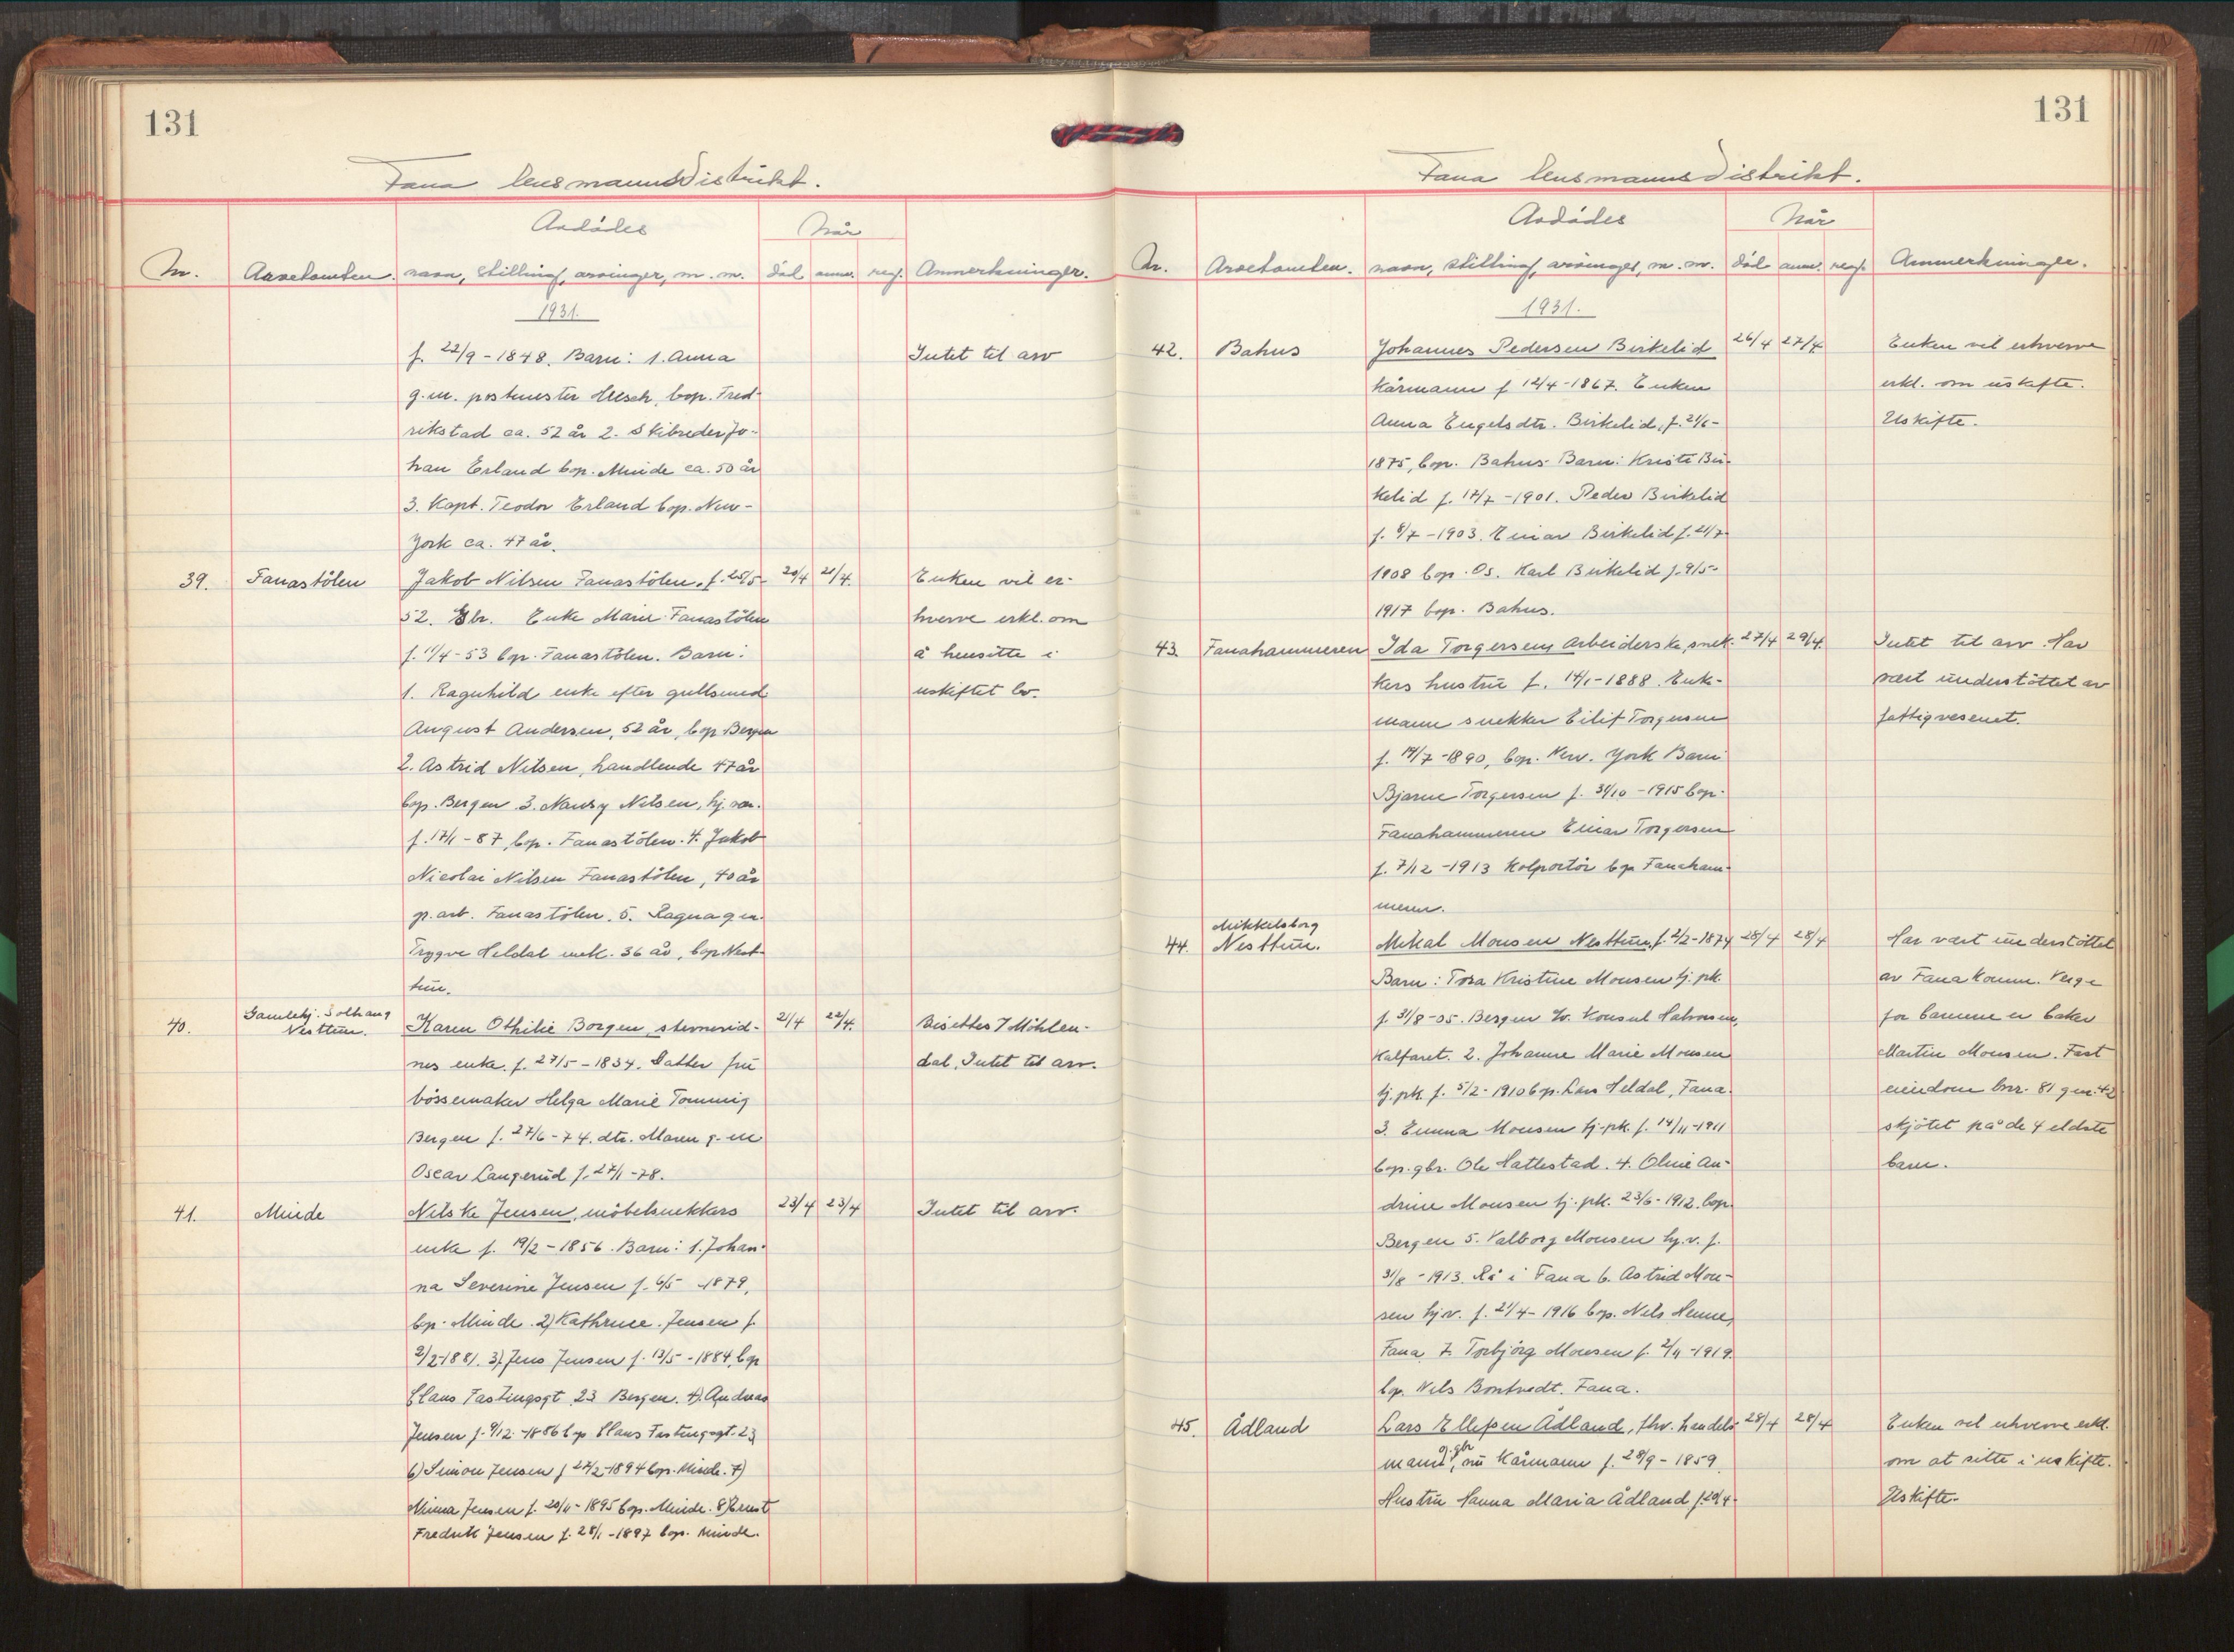 131
Fana lensmannsdistrikt.
Avdødes
Når
Nr. Arvetomten. navn, stilling, arvinger, m. m. död anm. reg. Anmerkninger.
1931.
f. 22/9 - 1848. Barn: 1. Anna
Intet til arv
g.m. postmester bop. Fred-
rikstad ca. 52 år 2. Skibsreder Jo-
han Erland bop. Minde ca. 50 år
3. Kapt. Teodor Erland bop. New-
York ca. 47 år.
39. Fanastölen Jakob Nilsen Fanastölen, f. 25/5- 20/4 21/4 Enken vil er-
52. Gbr. Enke Marie Fanastölen hverve erkl. om
f. 11/4 - 53 bop. Fanastölen. Barn: å hensitte i
1. Ragnhild enke efter gullsmed uskiftet bo.
August Andersen, 52 år, bop Bergen
2. Astrid Nilsen, handlende 47 år
bop. Bergen 3. Nilsen, hj. vær.
f. 17/1 - 87, bop. Fanastölen. 4. Jakob
Nicolai Nilsen Fanastölen, 40 år
p. arb. Fanastölen. 5. Ragna g.m.
Trygve Heldal 36 år, bop Nest-
tun.
40. Gamlehj. Solhaug
Nesttun. Karen Othilie Borgen, 21/4 22/4. Bisettes i Möhlen-
nes enke. f. 27/5 - 1834. Datter fru dal. Intet til arv.
bössemaker Helga Marie Tommig
Bergen f. 27/6 - 74. dtr. Maren g. m
Oscar Langerud f. 27/1 - 78.
41. Minde Nilske Jensen, möbelsnekkers 23/4 23/4 Intet til arv.
enke f. 19/2 - 1856. Barn: 1. Johan-
na Severine Jensen f. 6/5 - 1879,
bop. Minde. 2) Kathrine Jensen f.
2/2-1881. 3) Jens Jensen f. 13/5 - 1884, bop
Claus Fastingsgt 23 Bergen. 4) Andreas
Jensen f. 9/12-1886 bop Claus Fastingsgt. 23
6) Simon Jensen f 27/2-1894 bop. Minde. 7)
Minna Jensen f. 20/11 - 1895 bop. Minde. 8) Ernst
Fredrik Jensen f. 28/1 - 1897 bop. Minde.
131
Fana lensmannsdistrikt.
Avdødes
Når
Nr. Arvetomten. navn, stilling, arvinger, m. m. död anm. reg. Anmerkninger.
1931.
42. Bahus Johannes Pedersen Birkelid 26/4 27/4 Enken vil erhverve
kårmann f 12/4 - 1867. Enken erkl. om uskifte.
Anna Engelsdtr. Birkelid, f. 21/6 - Uskifte.
1875, bop. Bahus. Barn: Kristi Bir-
kelid f. 17/7 - 1901. Peder Birkelid
f. 8/7 - 1903. Einar Birkelid f. 21/7
1908 bop. Os. Karl Birkelid f. 9/5-
1917 bop. Bahus.
43. Fanahammeren Ida Torgersen, arbeiderske, snek- 27/4 29/4. Intet til arv. Har
kers hustru f. 14/1 - 1888. Enke- vært understöttet av
mann snekker Eilif Torgersen fattigvesenet.
f. 19/7 - 1890, bop. New. York Barn
Bjarne Torgersen f. 31/10 - 1915 bop.
Fanahammeren Einar Torgersen
f. 7/12 - 1913 Kolportör bop Fanaham-
meren.
44. Mikkelsborg
Nesttun. Mikal Monsen Nesttun, f. 2/2 - 1874 28/4 28/4 Har vært understöttet
Barn: Tora Kristine Monsen tj. pk. av Fana komm. Verge
f. 31/8 - 05. Bergen Konsul Halvorsen, for barnene er baker
Kalfaret. 2. Johanne Marie Monsen Martin Monsen. Fast
tj. pk. f. 5/2 - 1910 bop. Lars Heldal, Fana. eiendom bnr. 81 gnr. 42
3. Emma Monsen tj. pk. f. 14/11 - 1911 skjötet på de 4 eldste
bop. gbr. Ole Hattestad. 4. Oline An- barn.
drine Monsen tj. pk. 23/6 - 1912. bop.
Bergen 5. Valborg Monsen hj. v. f.
31/8 - 1913. Rå i Fana 6. Astrid Mon-
sen hj. v. f. 21/4 - 1916 bop. Nils Henne,
Fana. 7. Torbjörg Monsen f. 2/11 - 1919.
bop. Nils Bontvedt. Fana.
45. Ådland Lars Ellefsen Ådland, fhv. handels- 28/4 28/4 Enken vil erhverve erkl.
g. gbr
mann, nu kårmann f. 28/9 - 1859. om at sitte i uskifte.
Hustru Hanna Maria Ådland f. 29/4 - Uskifte.